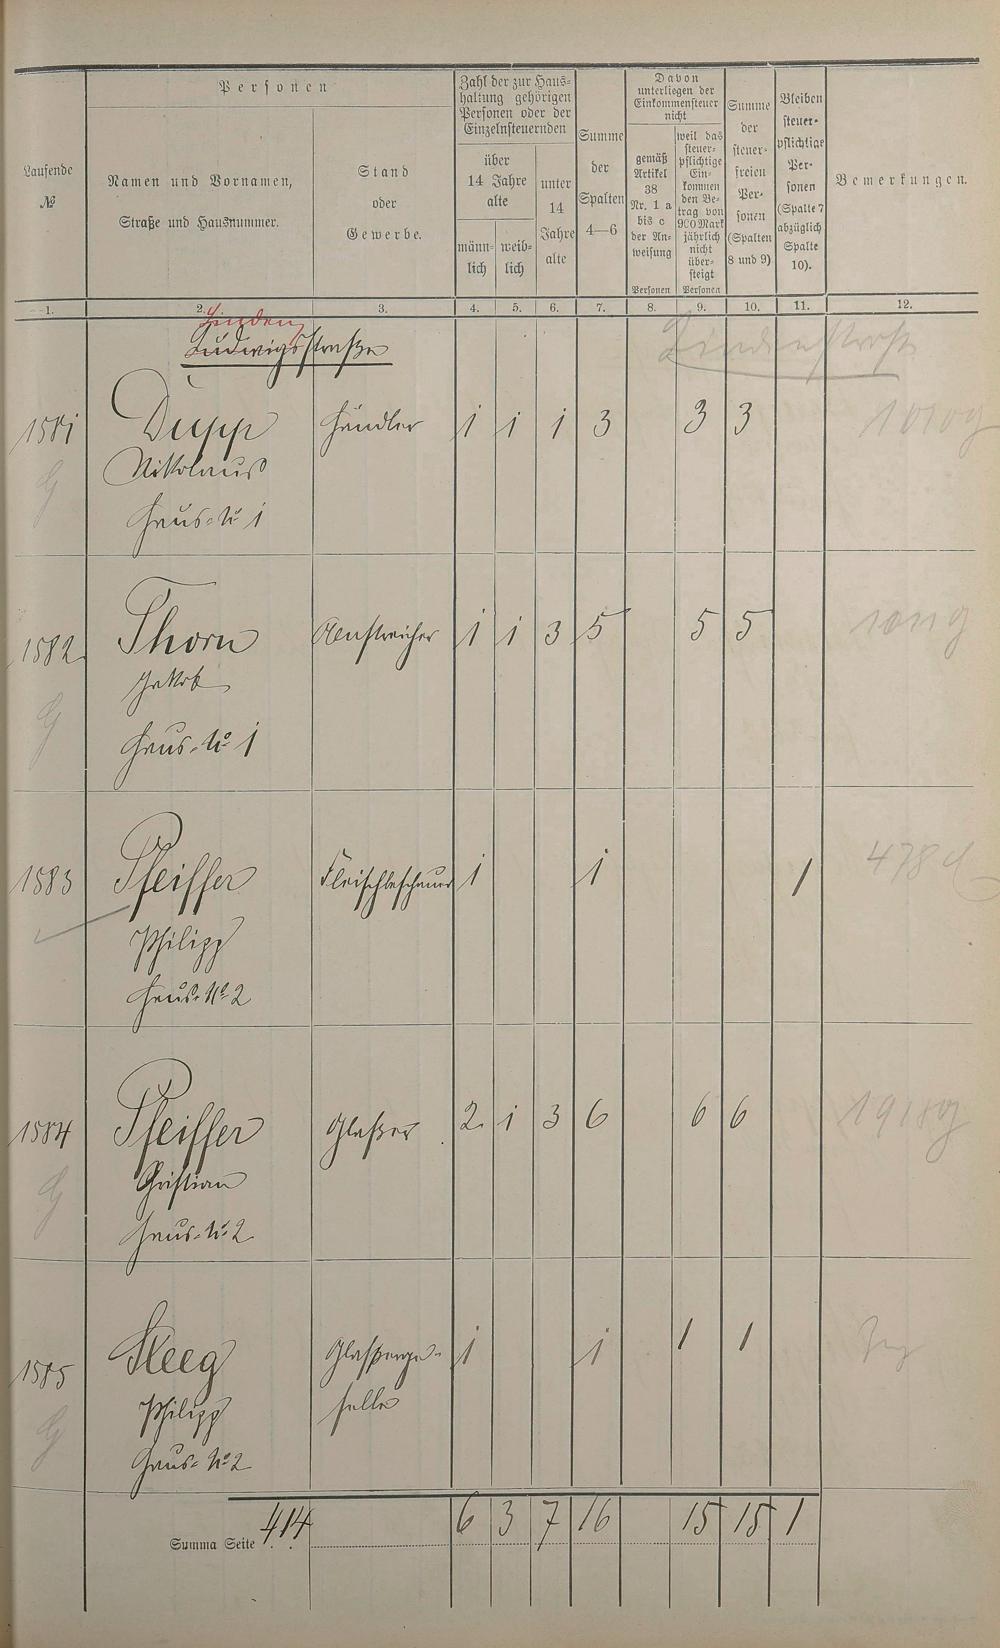 Laufende
№
Personen
Namen und Vornamen,
Straße und Hausnummer.
Stand
oder
Gewerbe.
Zahl der zur Haus-
haltung gehörigen
Personen oder der
Einzelnsteuernden
über
14 Jahre
alte
männ-
lich
weib-
lich
unter
14
Jahre
alte
Summe
der
Spalten
4—6
Davon
unterliegen der
Einkommensteuer
nicht
gemäß
Artikel
38
Nr. 1 a
bis c
der An-
weisung
Personen
weil das
steuer-
pflichtige
Ein-
kommen
den Be-
trag von
900 Mark
jährlich
nicht
über-
steigt
Personen
Summe
der
steuer-
freien
Per-
sonen
(Spalten
8 und 9)
Bleiben
steuer-
pflichtige
Per-
sonen
(Spalte 7
abzüglich
Spalte
10).
Bemerkungen.
1. 2. 3. 4. 5. 6. 7. 8. 9. 10. 11. 12.
Linden
Ludwigsstraße
Lindenstraße
1581 Dupp Händler 1 1 1 3 3 3
G Nikolaus
Haus-No 1
1582 Thorn Anstreicher 1 1 3 5 5 5
G Jakob
Haus-No 1
1583 Pfeiffer Fleischbeschauer 1 1 1 478
Philipp
Haus-No 2
1584 Pfeiffer Glaßer 2 1 3 6 6 6 1918 g
G Christian
Haus-No 2
1585 Steeg Glaßerge- 1 1 1 1
G Philipp selle
Haus-No 2
Summa Seite 414 6 3 7 16 15 15 1